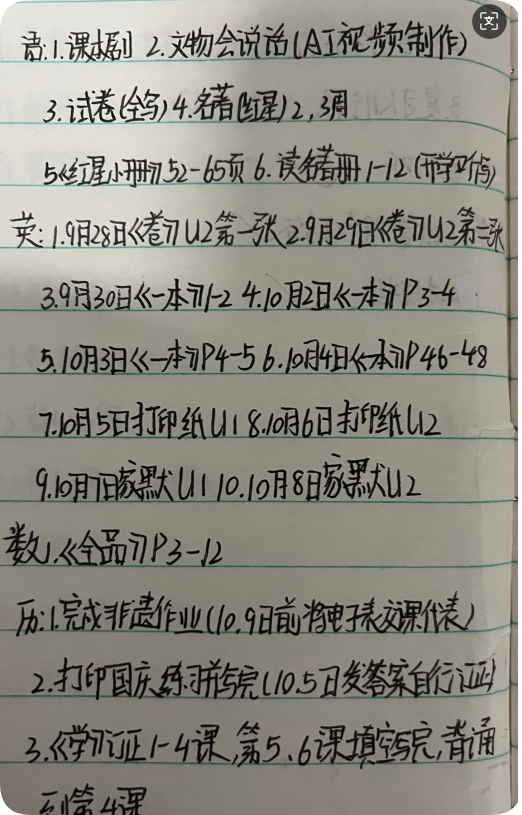 语:1.课本剧 2.文物会说话(AI视频制作)
3.试卷(全写) 4.名著(红星)2,3周
5.《红星小册》52-65页 6.读名著册1-12(开学写作有)
英:1.9月28日《卷》U2第一张 2.9月29日《卷》U2第二张
3.9月30日《一本》1-2 4.10月2日《一本》P3-4
5.10月3日《一本》P4-5 6.10月4日《一本》P46-48
7.10月5日打印纸U1 8.10月6日打印纸U2
9.10月7日家默U1 10.10月8日家默U2
数1.《全品》P3-12
历:1.完成非遗作业(10.9日前将电子表交课代表)
2.打印国庆练习并写完(10.5日发答案自行订正)
3.《学》订正1-4课,第5、6课填空写完,背诵
到第4课